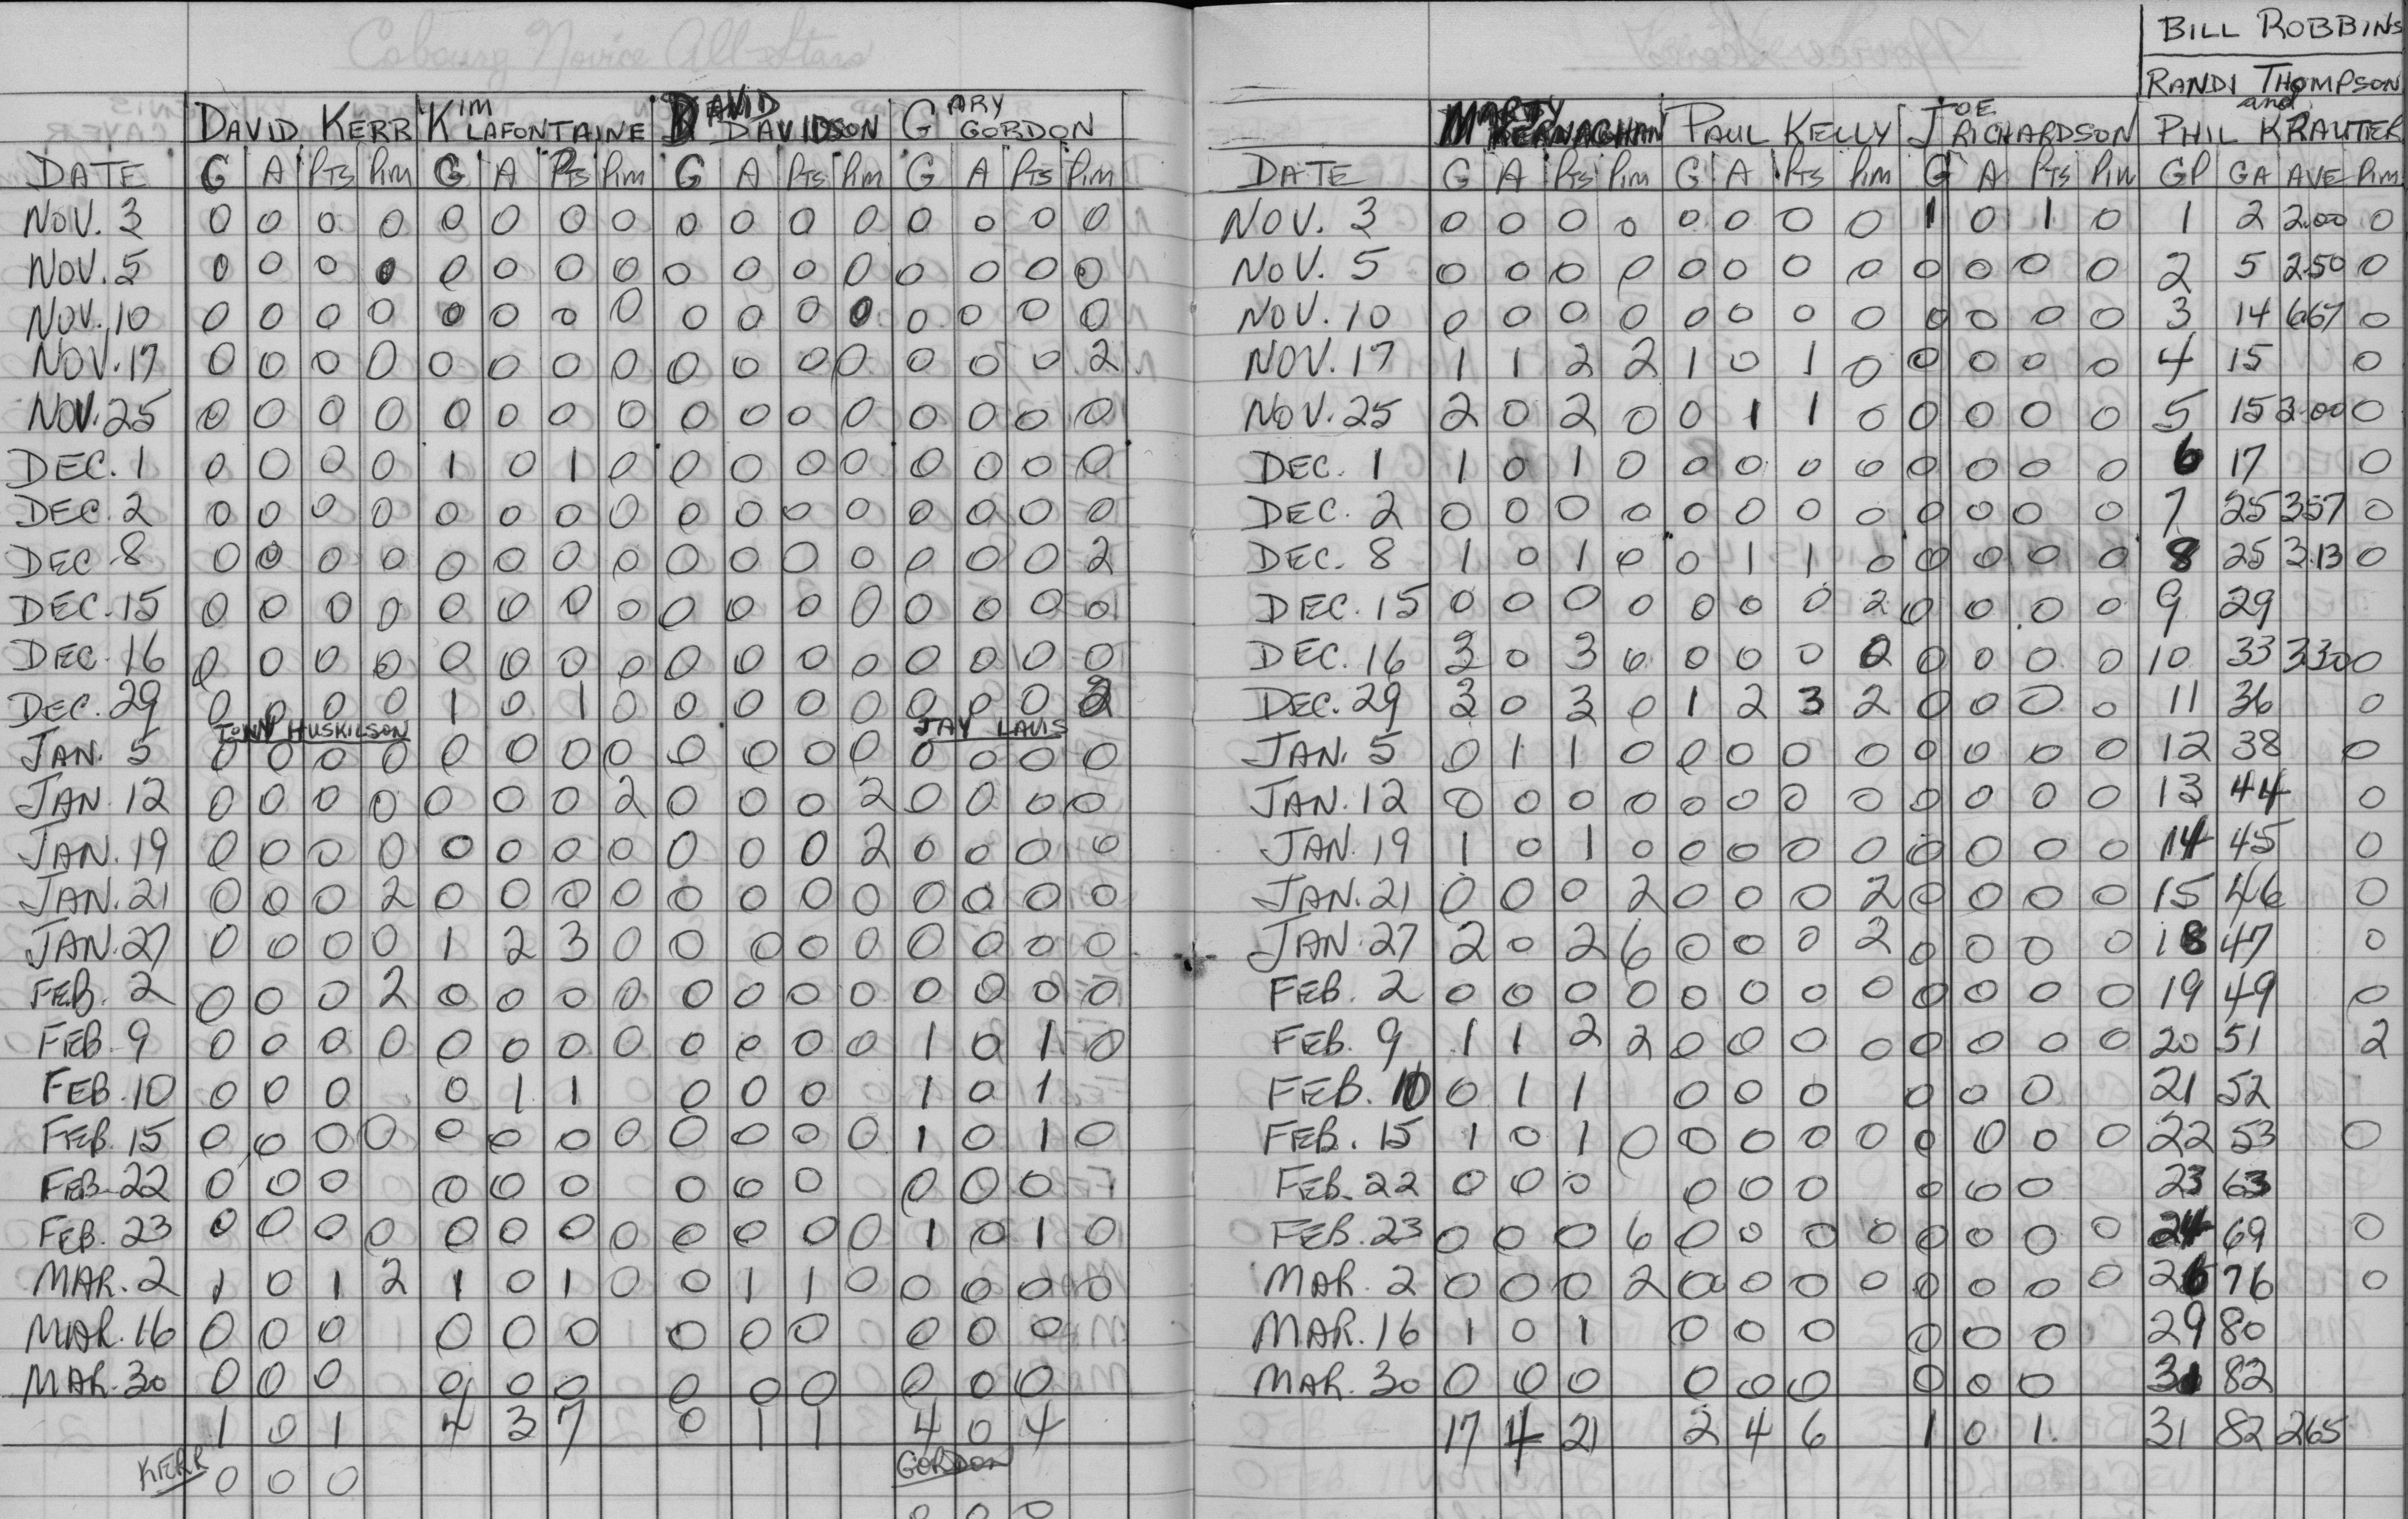 Cobourg Novice All-Stars
DAVID KERR KIM LAFONTAINE DAVID DAVIDSON GARY GORDON
DATE G A PTS PIM G A PTS PIM G A PTS PIM G A PTS PIM
NOV. 3 0 0 0 0 0 0 0 0 0 0 0 0 0 0 0 0
NOV. 5 0 0 0 0 0 0 0 0 0 0 0 0 0 0 0 0
NOV. 10 0 0 0 0 0 0 0 0 0 0 0 0 0 0 0 0
NOV. 17 0 0 0 0 0 0 0 0 0 0 0 0 0 0 0 2
NOV. 25 0 0 0 0 0 0 0 0 0 0 0 0 0 0 0 0
DEC. 1 0 0 0 0 1 0 1 0 0 0 0 0 0 0 0 0
DEC. 2 0 0 0 0 0 0 0 0 0 0 0 0 0 0 0 0
DEC 8 0 0 0 0 0 0 0 0 0 0 0 0 0 0 0 2
DEC. 15 0 0 0 0 0 0 0 0 0 0 0 0 0 0 0 0
DEC. 16 0 0 0 0 0 0 0 0 0 0 0 0 0 0 0 0
DEC. 29 0 0 0 0 1 0 1 0 0 0 0 0 0 0 0 2
TONY HUSKILSON JAY LAVIS
JAN. 5 0 0 0 0 0 0 0 0 0 0 0 0 0 0 0 0
JAN. 12 0 0 0 0 0 0 0 2 0 0 0 2 0 0 0 0
JAN. 19 0 0 0 0 0 0 0 0 0 0 0 2 0 0 0 0
JAN. 21 0 0 0 2 0 0 0 0 0 0 0 0 0 0 0 0
JAN. 27 0 0 0 0 1 2 3 0 0 0 0 0 0 0 0 0
FEB. 2 0 0 0 2 0 0 0 0 0 0 0 0 0 0 0 0
FEB. 9 0 0 0 0 0 0 0 0 0 0 0 0 1 0 1 0
FEB. 10 0 0 0 0 1 1 0 0 0 1 0 1
FEB. 15 0 0 0 0 0 0 0 0 0 0 0 0 1 0 1 0
FEB. 22 0 0 0 0 0 0 0 0 0 0 0 0
FEB. 23 0 0 0 0 0 0 0 0 0 0 0 0 1 0 1 0
MAR. 2 1 0 1 2 1 0 1 0 0 1 1 0 0 0 0 0
MAR. 16 0 0 0 0 0 0 0 0 0 0 0 0
MAR. 30 0 0 0 0 0 0 0 0 0 0 0 0
1 0 1 4 3 7 0 1 1 4 0 4
KERR 0 0 0 GORDON
0 0 0
BILL ROBBINS
RANDI THOMPSON
and
MARTY KERNAGHAN PAUL KELLY JOE RICHARDSON PHIL KRAUTER
DATE G A PTS PIM G A PTS PIM G A PTS PIM GP GA AVE PIM
NOV. 3 0 0 0 0 0 0 0 0 1 0 1 0 1 2 2.00 0
NOV. 5 0 0 0 0 0 0 0 0 0 0 0 0 2 5 2.50 0
NOV. 10 0 0 0 0 0 0 0 0 0 0 0 0 3 14 667 0
NOV. 17 1 1 2 2 1 0 1 0 0 0 0 0 4 15 0
NOV. 25 2 0 2 0 0 1 1 0 0 0 0 0 5 15 3.00 0
DEC. 1 1 0 1 0 0 0 0 0 0 0 0 0 6 17 0
DEC. 2 0 0 0 0 0 0 0 0 0 0 0 0 7 25 357 0
DEC. 8 1 0 1 0 0 1 1 0 0 0 0 0 8 25 3.13 0
DEC. 15 0 0 0 0 0 0 0 2 0 0 0 0 9 29
DEC. 16 3 0 3 0 0 0 0 0 0 0 0 0 10 33 330 0
DEC. 29 3 0 3 0 1 2 3 2 0 0 0 0 11 36 0
JAN. 5 0 1 1 0 0 0 0 0 0 0 0 0 12 38 0
JAN. 12 0 0 0 0 0 0 0 0 0 0 0 0 13 44 0
JAN. 19 1 0 1 0 0 0 0 0 0 0 0 0 14 45 0
JAN. 21 0 0 0 2 0 0 0 2 0 0 0 0 15 46 0
JAN. 27 2 0 2 6 0 0 0 2 0 0 0 0 18 47 0
FEB. 2 0 0 0 0 0 0 0 0 0 0 0 0 19 49 0
FEB. 9 1 1 2 2 0 0 0 0 0 0 0 0 20 51 2
FEB. 10 0 1 1 0 0 0 0 0 0 21 52
FEB. 15 1 0 1 0 0 0 0 0 0 0 0 0 22 53 0
FEB. 22 0 0 0 0 0 0 0 0 0 23 63
FEB. 23 0 0 0 6 0 0 0 0 0 0 0 0 24 69 0
MAR. 2 0 0 0 2 0 0 0 0 0 0 0 0 26 76 0
MAR. 16 1 0 1 0 0 0 0 0 0 29 80
MAR. 30 0 0 0 0 0 0 0 0 0 31 82
17 4 21 2 4 6 1 0 1. 31 82 265